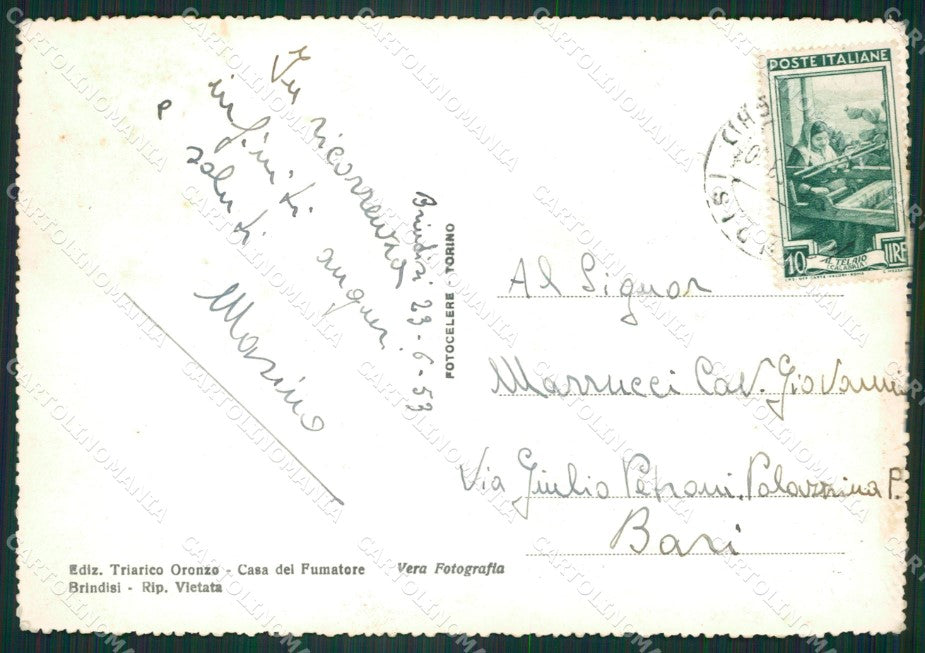 ricorrenza
infiniti auguri
saluti
Masino
Brindisi 23-6-53
FOTOCELERE TORINO
POSTE ITALIANE
10 LIRE
IL TELAIO
(CALABRIA)
Al Signor
Marzucci Cav. Giovanni
Via Giulio Petroni, Palazzina P.
Bari
Ediz. Triarico Oronzo - Casa del Fumatore Vera Fotografia
Brindisi - Rip. Vietata
CARTOLINOMANIA